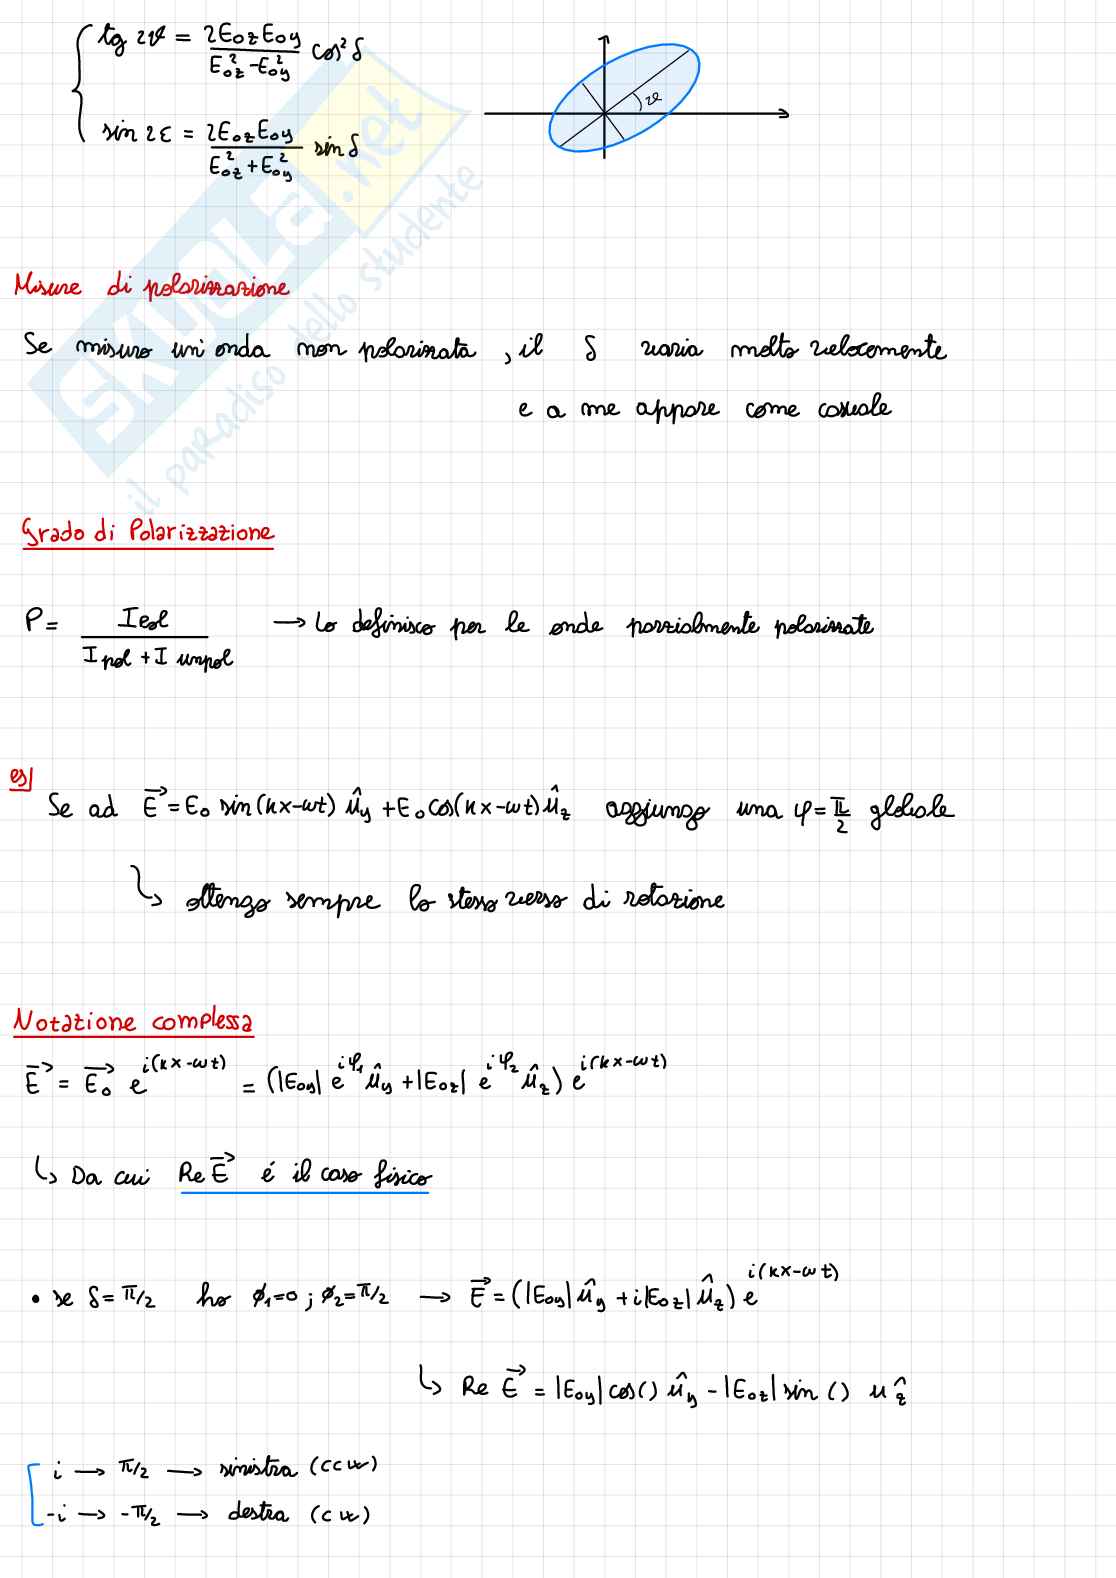 tg 2ϑ = 2E₀z E₀y / (E₀z² - E₀y²) cos² δ
2ϑ
sin 2ε = 2E₀z E₀y / (E₀z² + E₀y²) sin δ
SKUOLA.net
il paradiso dello studente
Misure di polarizzazione
Se misuro un'onda non polarizzata, il δ varia molto velocemente
e a me appare come casuale
Grado di Polarizzazione
P = Ipol / (I pol + I unpol) → Lo definisco per le onde parzialmente polarizzate
es|
Se ad E⃗ = E₀ sin(kx-ωt) û_y + E₀ cos(kx-ωt) û_z aggiungo una φ = π/2 globale
↳ ottengo sempre lo stesso verso di rotazione
Notazione complessa
E⃗ = E⃗₀ e^{i(kx-ωt)} = (|E₀y| e^{iφ₁} û_y + |E₀z| e^{iφ₂} û_z) e^{i(kx-ωt)}
↳ Da cui Re E⃗ é il caso fisico
• se δ = π/2 ho ϕ₁=0 ; ϕ₂=π/2 → E⃗ = (|E₀y| û_y + i|E₀z| û_z) e^{i(kx-ωt)}
↳ Re E⃗ = |E₀y| cos() û_y - |E₀z| sin () û_z
i → π/2 → sinistra (ccw)
-i → -π/2 → destra (cw)